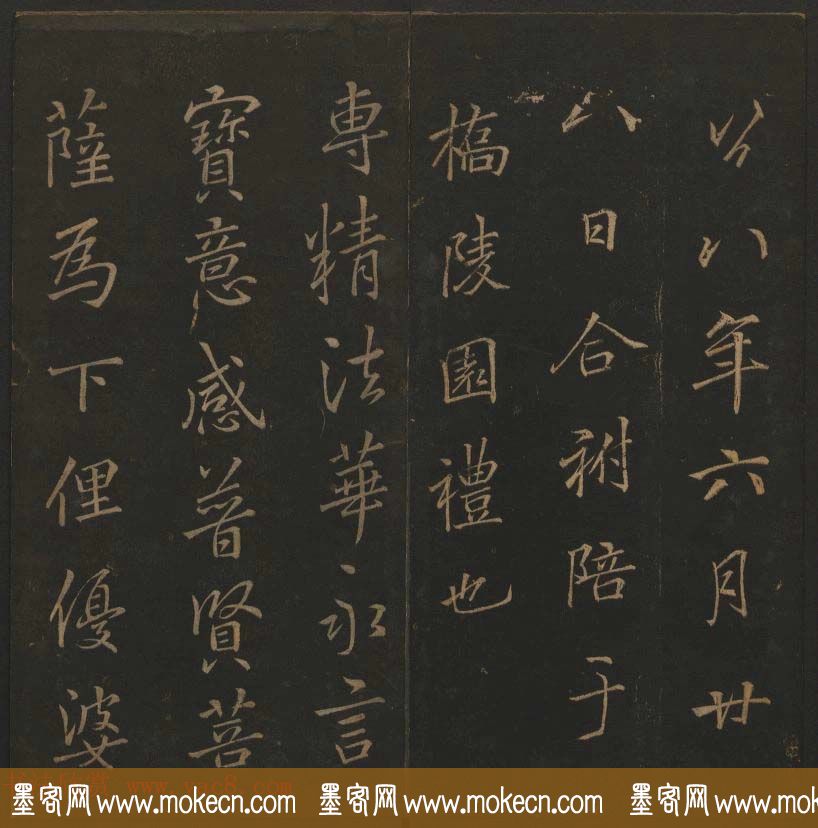 八年六月廿
八日合祔陪于
橋陵園禮也
専精法華永言
寶意感普賢菩
薩為下俚優婆
www.yac8.com
墨客网 www.mokecn.com 墨客网 www.mokecn.com 墨客网 www.mokecn.com